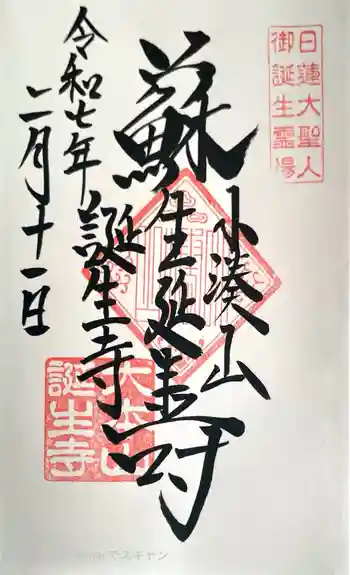 日蓮大聖人
御誕生霊場
小湊山
蘇生延寿
誕生寺
令和七年
二月十一日
大本山
誕生寺